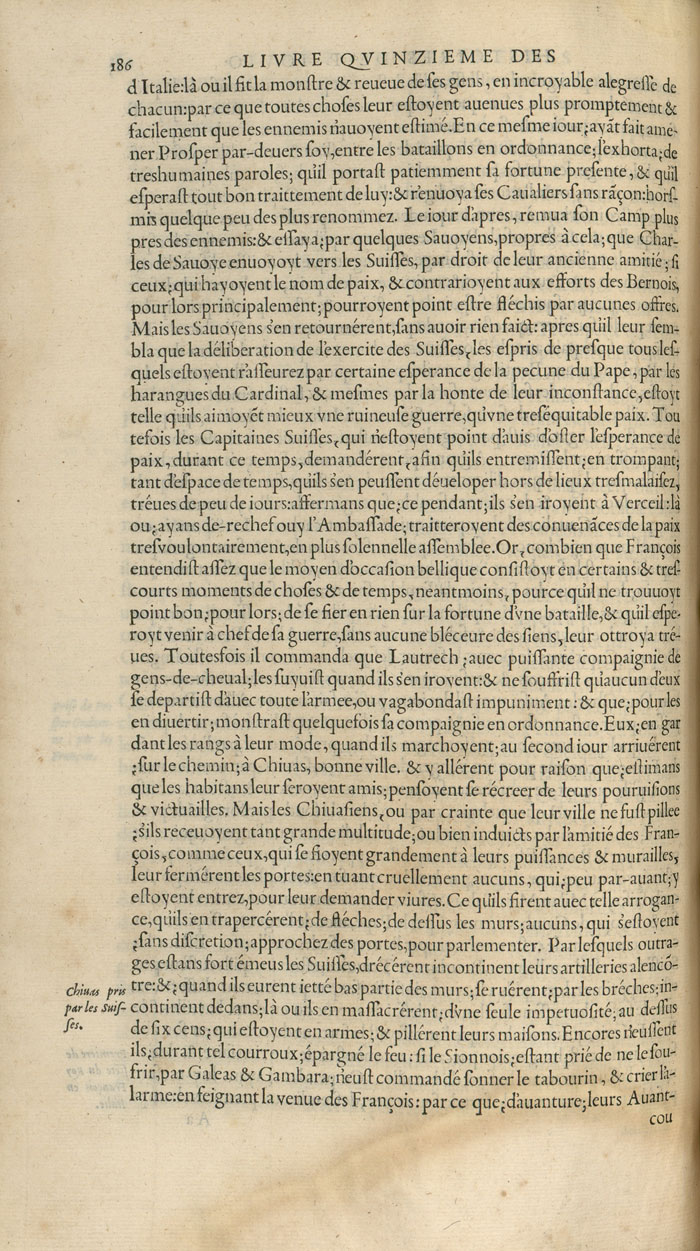 186 LIVRE QVINZIEME DES
d'Italie:là ou il fit la monſtre & reueue de ſes gens, en incroyable alegreſſe de
chacun:par ce que toutes choſes leur eſtoyent auenues plus promptement &
facilement que les ennemis n'auoyent eſtimé.En ce meſme iour;ayāt fait ame-
ner Proſper par-deuers ſoy,entre les bataillons en ordonnance;l'exhorta;de
treshumaines paroles; qu'il portaſt patiemment ſa fortune preſente, & qu'il
eſperaſt tout bon traittement de luy:& r'enuoya ſes Caualiers ſans rāçon:horſ-
mis quelque peu des plus renommez. Le iour d'apres, remua ſon Camp plus
pres des ennemis:& eſſaya;par quelques Sauoyens,propres à cela;que Char-
les de Sauoye enuoyoyt vers les Suiſſes, par droit de leur ancienne amitié;ſi
ceux;qui hayoyent le nom de paix, & contrarioyent aux efforts des Bernois,
pour lors principalement;pourroyent point eſtre fléchis par aucunes offres.
Mais les Sauoyens s'en retournérent,ſans auoir rien faict: apres qu'il leur ſem-
bla que la déliberation de l'exercite des Suiſſes,les eſpris de preſque tous leſ-
quels eſtoyent r'aſſeurez par certaine eſperance de la pecune du Pape, par les
harangues du Cardinal, & meſmes par la honte de leur inconſtance, eſtoyt
telle qu'ils aimoyēt mieux vne ruineuſe guerre,qu'vne treſéquitable paix. Tou
tefois les Capitaines Suiſſes,qui n'eſtoyent point d'auis d'oſter l'eſperance de
paix, durant ce temps,demandérent,afin qu'ils entremiſſent;en trompant;
tant d'eſpace de temps,qu'ils s'en peuſſent déueloper hors de lieux treſmalaiſez,
tréues de peu de iours:affermans que;ce pendant;ils s'en iroyent à Verceil:là
ou;ayans de-rechef ouy l'Ambaſſade;traitteroyent des conuenāces de la paix
treſvoulontairement,en plus ſolennelle aſſemblee.Or,combien que François
entendiſt aſſez que le moyen d'occaſion bellique conſiſtoyt en certains & treſ-
courts moments de choſes & de temps,neantmoins,pource qu'il ne trouuoyt
point bon;pour lors;de ſe fier en rien ſur la fortune d'vne bataille,& qu'il eſpe-
royt venir à chef de ſa guerre,ſans aucune bléceure des ſiens,leur ottroya tré-
ues. Toutesfois il commanda que Lautrech;auec puiſſante compaignie de
gens-de-cheual;les ſuyuiſt quand ils s'en iroyent:& ne ſouffriſt qu'aucun d'eux
ſe departiſt d'auec toute l'armee,ou vagabondaſt impuniment:& que;pour les
en diuertir;monſtraſt quelquefois ſa compaignie en ordonnance.Eux;en gar
dant les rangs à leur mode, quand ils marchoyent;au ſecond iour arriuérent
;ſur le chemin;à Chiuas, bonne ville. & y allérent pour raiſon que;eſtimans
que les habitans leur ſeroyent amis;penſoyent ſe récreer de leurs pouruiſions
& victuailles. Mais les Chiuaſiens,ou par crainte que leur ville ne fuſt pillee
;s'ils receuoyent tant grande multitude;ou bien induicts par l'amitié des Fran-
çois,comme ceux,qui ſe fioyent grandement à leurs puiſſances & murailles,
leur fermérent les portes:en tuant cruellement aucuns, qui;peu par-auant;y
eſtoyent entrez,pour leur demander viures. Ce qu'ils firent auec telle arrogan-
ce,qu'ils en trapercérent;de fléches;de deſſus les murs;aucuns, qui s'eſtoyent
;ſans diſcretion;approchez des portes,pour parlementer. Par leſquels outra-
ges eſtans fort émeus les Suiſſes,drécérent incontinent leurs artilleries alencō-
tre:&;quand ils eurent ietté bas partie des murs;ſe ruérent;par les bréches;in-
continent dedans;là ou ils en maſſacrérent;d'vne ſeule impetuoſité;au deſſus
de ſix cens;qui eſtoyent en armes;& pillérent leurs maiſons. Encores n'euſſent
ils;durant tel courroux;épargné le feu:ſi le Sionnois;eſtant prié de ne le ſou-
frir,par Galeas & Gambara;n'euſt commandé ſonner le tabourin, & crier l'a-
larme:en feignant la venue des François:par ce que;d'auanture;leurs Auant-
cou
Chiuas pris
par les Suiſ-
ſes.